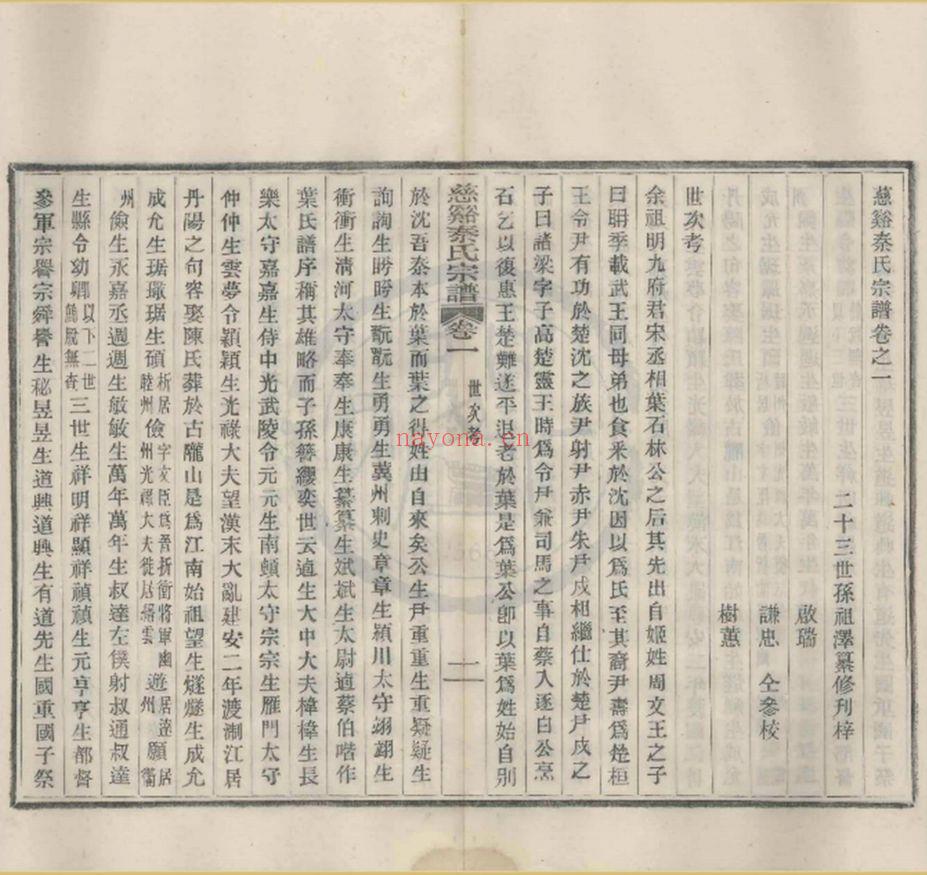 慈谿秦氏宗譜卷之一
二十三世孫祖澤纂修刊梓
啟瑞
謙忠 仝參校
樹蕙
世次考
余祖明九府君宋丞相葉石林公之后其先出自姬姓周文王之子
曰聃季載武王同母弟也食釆於沈因以為氏至其裔尹壽為楚桓
王令尹有功於楚沈之族尹射尹赤尹朱尹戍相繼仕於楚尹戍之
子曰諸梁字子高楚靈王時為令尹兼司馬之事自蔡入逐白公烹
石乞以復惠王楚難遂平退老於葉是為葉公卽以葉為姓始自別
慈谿秦氏宗譜 卷一 世次考 一
於沈吾泰本於葉而葉之得姓由自來矣公生尹重重生重疑疑生
詢詢生盻盻生翫翫生勇勇生冀州刺史章章生潁川太守翊翊生
衝衝生清河太守奉奉生康康生纂纂生斌斌生太尉逌蔡伯喈作
葉氏譜序稱其雄略而子孫簪纓奕世云逌生大中大夫椲椲生長
樂太守嘉嘉生侍中光武陵令元元生南頓太守宗宗生雁門太守
仲仲生雲夢令穎穎生光祿大夫望漢末大亂建安二年渡淛江居
丹陽之句容娶陳氏葬於古隴山是為江南始祖望生燧燧生成允
成允生琚璥琚生碩析居睦州儉字文臣為晉折衝將軍光祿大夫徙居縉雲幽居遼遊州願居衢州
儉生永嘉丞週週生敏敏生萬年萬年生叔達左僕射叔通叔達
生縣令幼卿以下二世歸脫無查三世生祥明祥顯祥禎禎生元亨亨生都督
參軍宗譽宗舜譽生秘昱昱生道興道興生有道先生國重國子祭
nayona.cn